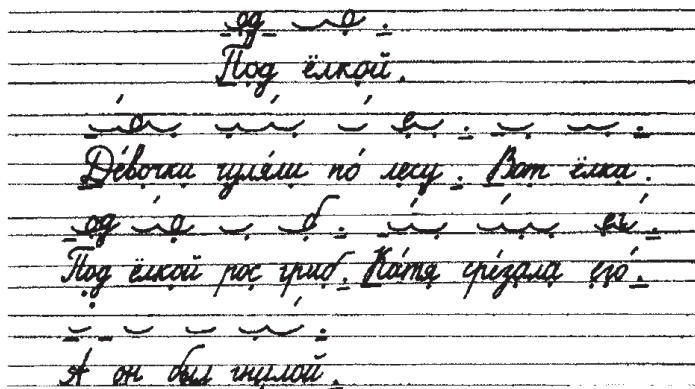 Под ёлкой.
Де́вочки гуля́ли по́ лесу. Вот ёлка.
Под ёлкой рос гриб. Ка́тя сре́зала его́.
А он был гнилой.